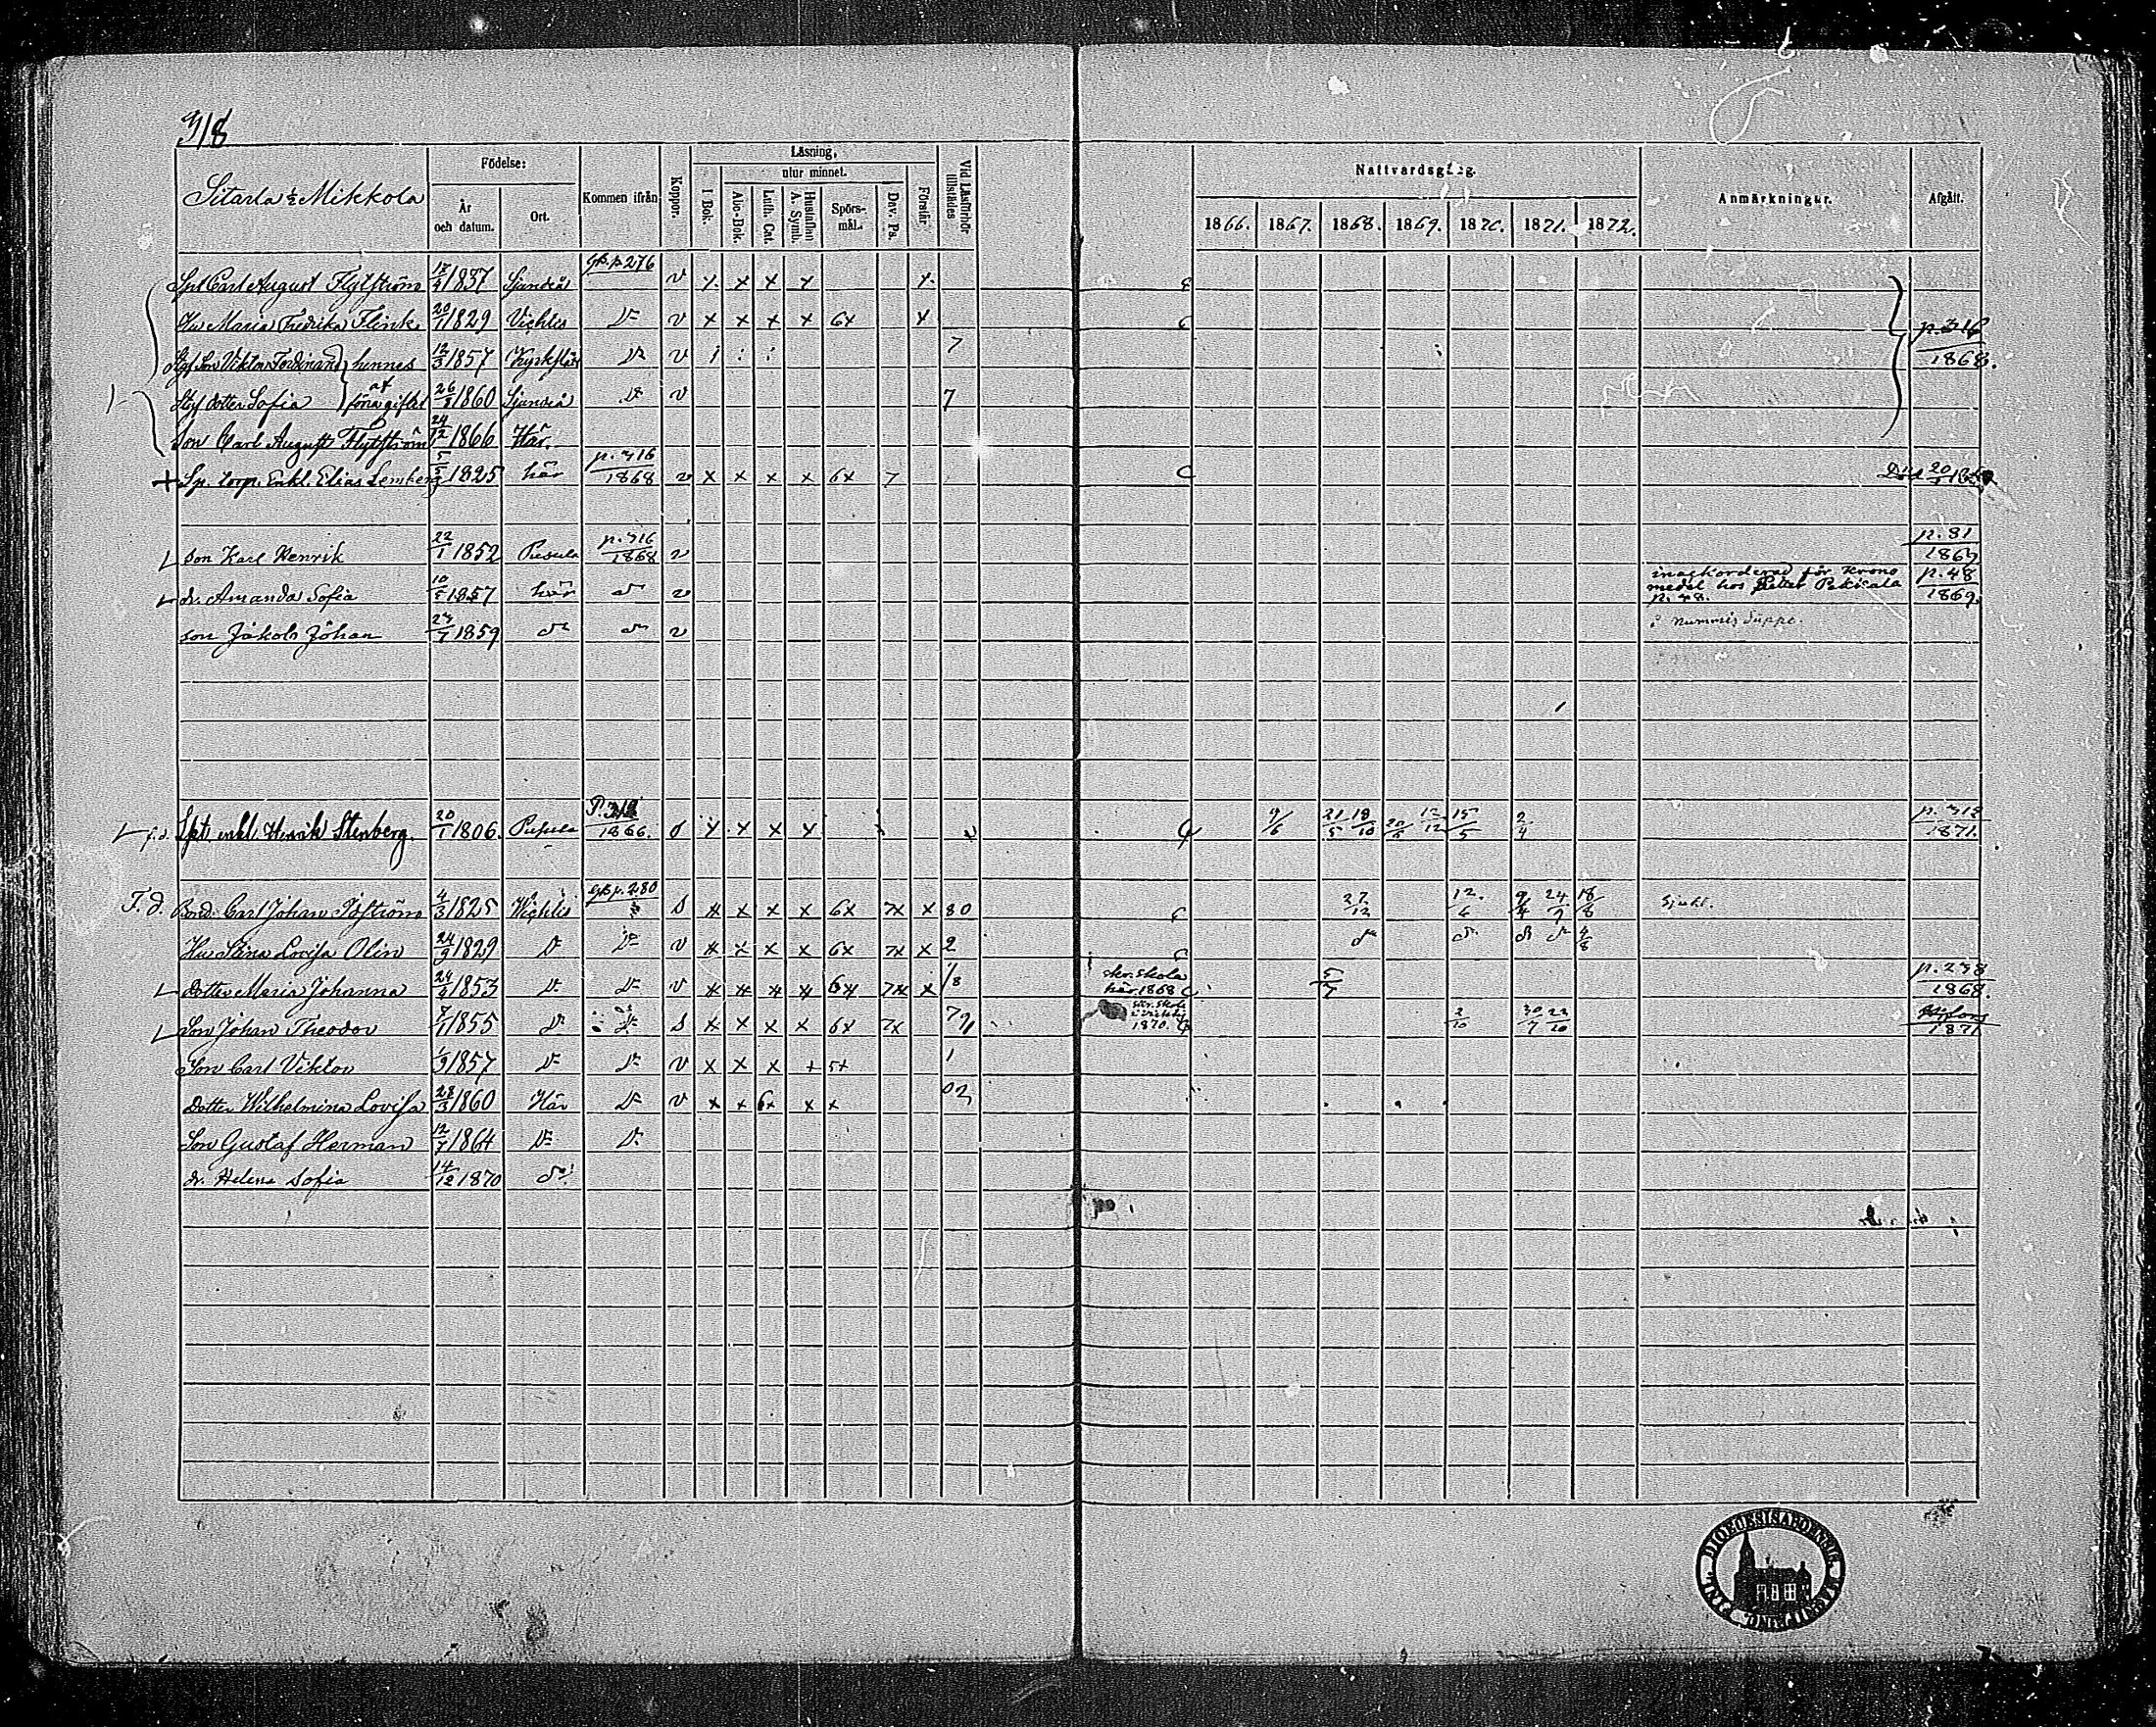 318
Sitarla ½ Mikkola
Födelse:
År och datum.
Ort.
Kommen ifrån
Koppor.
Läsning,
utur minnet.
I Bok.
Abc-Bok.
Luth. Cat.
Hustaflan A. Symb.
Spörs-mål.
Dav. Ps.
Förstår.
Vid Läsförhör tillstädes
Nattvardsgång.
1866. 1867. 1868. 1869. 1870. 1871. 1872.
Anmärkningar.
Afgått.
Carl August Flytström 17/4 1837 Sjundeå p. 276 v x x x x x
Hu Maria Fredrika Flink 20/1 1829 Vichtis D:o v x x x x 6x x p. 316 1868.
Son Viktor Ferdinand hennes 12/3 1857 Kyrkslät D:o v 7
dotter Sofia af förra giftet 26/5 1860 Sjundeå D:o v 7
Son Carl August Flytström 24/12 1866 Här.
+ Sp. torp. Enkl. Elias Lemberg 5/5 1825 här p. 316 1868 v x x x x 6x 7 Död
son Karl Henrik 22/1 1852 Pusula p. 316 1868 v p. 81 1869
dr. Amanda Sofia 10/5 1857 här d:o v medel hos p. 48. p. 48 1869.
son Jakob Johan 27/7 1859 d:o d:o v
f.d. enkl. Henrik Stenberg. 20/1 1806. Pusula 1866. x x x x 9/6 21/5 18/10 20/6 12/12 15/5 2/4 p. 318 1871.
T.d. Bond. Carl Johan 4/3 1825 Vichtis p. 280 S x x x x 6x 7x x 80 27/12 12/6 9/4 24/7 18/8 Sjukl.
Hu Stina Lovisa Olin 24/9 1829 D:o D:o v x x x x 6x 7x x 2 d:o d:o d:o d:o 4/8
Dotter Maria Johanna 24/9 1853 D:o D:o v x x x x 6x 7x x 1/8 skr. skola här. 1868 5/7 p. 238 1868.
Son Johan Theodor 7/1 1855 D:o D:o S x x x x 6x 7x 1870. 2/10 30/7 22/10 1871
Son Carl Viktor 1/9 1857 D:o D:o v x x x + 5x 1
Dotter Wilhelmina Lovisa 28/3 1860 Här D:o v x x 6x x x
Son Gustaf Herman 12/7 1864 D:o D:o
dr. Helena Sofia 14/12 1870 d:o